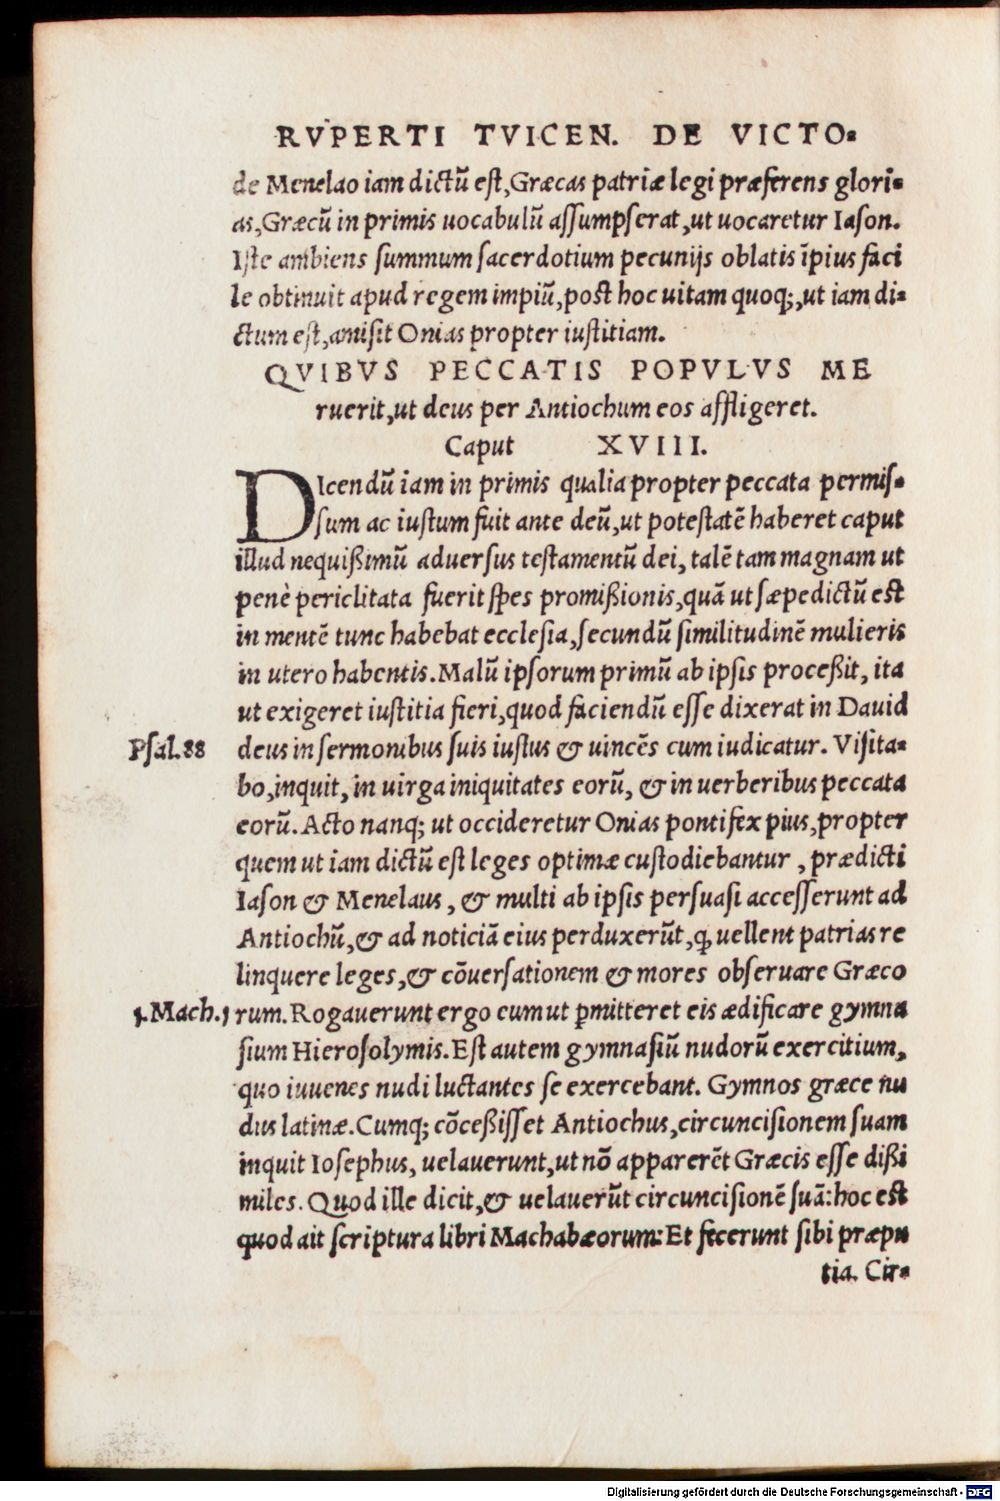 RVPERTI TVICEN. DE VICTO-
de Menelao iam dictũ est, Græcas patriæ legi præferens glori-
as, Græcũ in primis uocabulũ assumpserat, ut uocaretur Iason.
Iste ambiens summum sacerdotium pecunijs oblatis ĩpius faci
le obtinuit apud regem impiũ, post hoc uitam quoq;, ut iam di-
ctum est, amisit Onias propter iustitiam.
QVIBVS PECCATIS POPVLVS ME
ruerit, ut deus per Antiochum eos affligeret.
Caput XVIII.
DIcendũ iam in primis qualia propter peccata permis-
sum ac iustum fuit ante deũ, ut potestatẽ haberet caput
illud nequißimũ aduersus testamentũ dei, talẽ tam magnam ut
penè periclitata fuerit spes promißionis, quã ut sæpe dictũ est
in mentẽ tunc habebat ecclesia, secundũ similitudinẽ mulieris
in utero habentis. Malũ ipsorum primũ ab ipsis proceßit, ita
ut exigeret iustitia fieri, quod faciendũ esse dixerat in Dauid
Psal. 88 deus in sermonibus suis iustus & uincẽs cum iudicatur. Visita-
bo, inquit, in uirga iniquitates eorũ, & in uerberibus peccata
eorũ. Acto nanq; ut occideretur Onias pontifex pius, propter
quem ut iam dictũ est leges optimæ custodiebantur, prædicti
Iason & Menelaus, & multi ab ipsis persuasi accesserunt ad
Antiochũ, & ad noticiã eius perduxerũt, ꝙ uellent patrias re
linquere leges, & cõuersationem & mores obseruare Græco
1. Mach. 1 rum. Rogauerunt ergo cum ut ꝑmitteret eis ædificare gymna
sium Hierosolymis. Est autem gymnasiũ nudorũ exercitium,
quo iuuenes nudi luctantes se exercebant. Gymnos græce nu
dus latinæ. Cumq; cõceßisset Antiochus, circuncisionem suam
inquit Iosephus, uelauerunt, ut nõ apparerẽt Græcis esse dißi
miles. Quod ille dicit, & uelauerũt circuncisionẽ suã: hoc est
quod ait scriptura libri Machabæorum: Et fecerunt sibi præpu
tia. Cir-
Digitalisierung gefördert durch die Deutsche Forschungsgemeinschaft - DFG